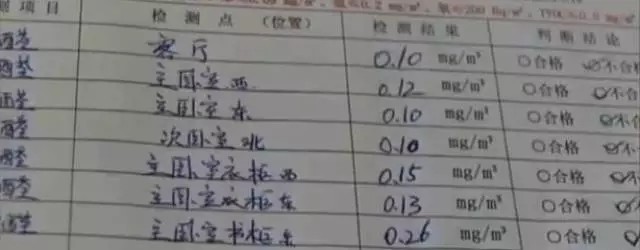 测项目 检测点(位置) 检测结果 判断结论
客厅 0.10 mg/m³ ○合格 ○不合
主卧室西 0.12 mg/m³ ○合格 ○不合
主卧室东 0.10 mg/m³ ○合格 ○不合
次卧室北 0.10 mg/m³ ○合格 ○不
主卧室衣柜西 0.15 mg/m³ ○合格 ○不
主卧室衣柜东 0.13 mg/m³ ○合格 ○不
主卧室书柜东 0.26 mg/m³ ○合格